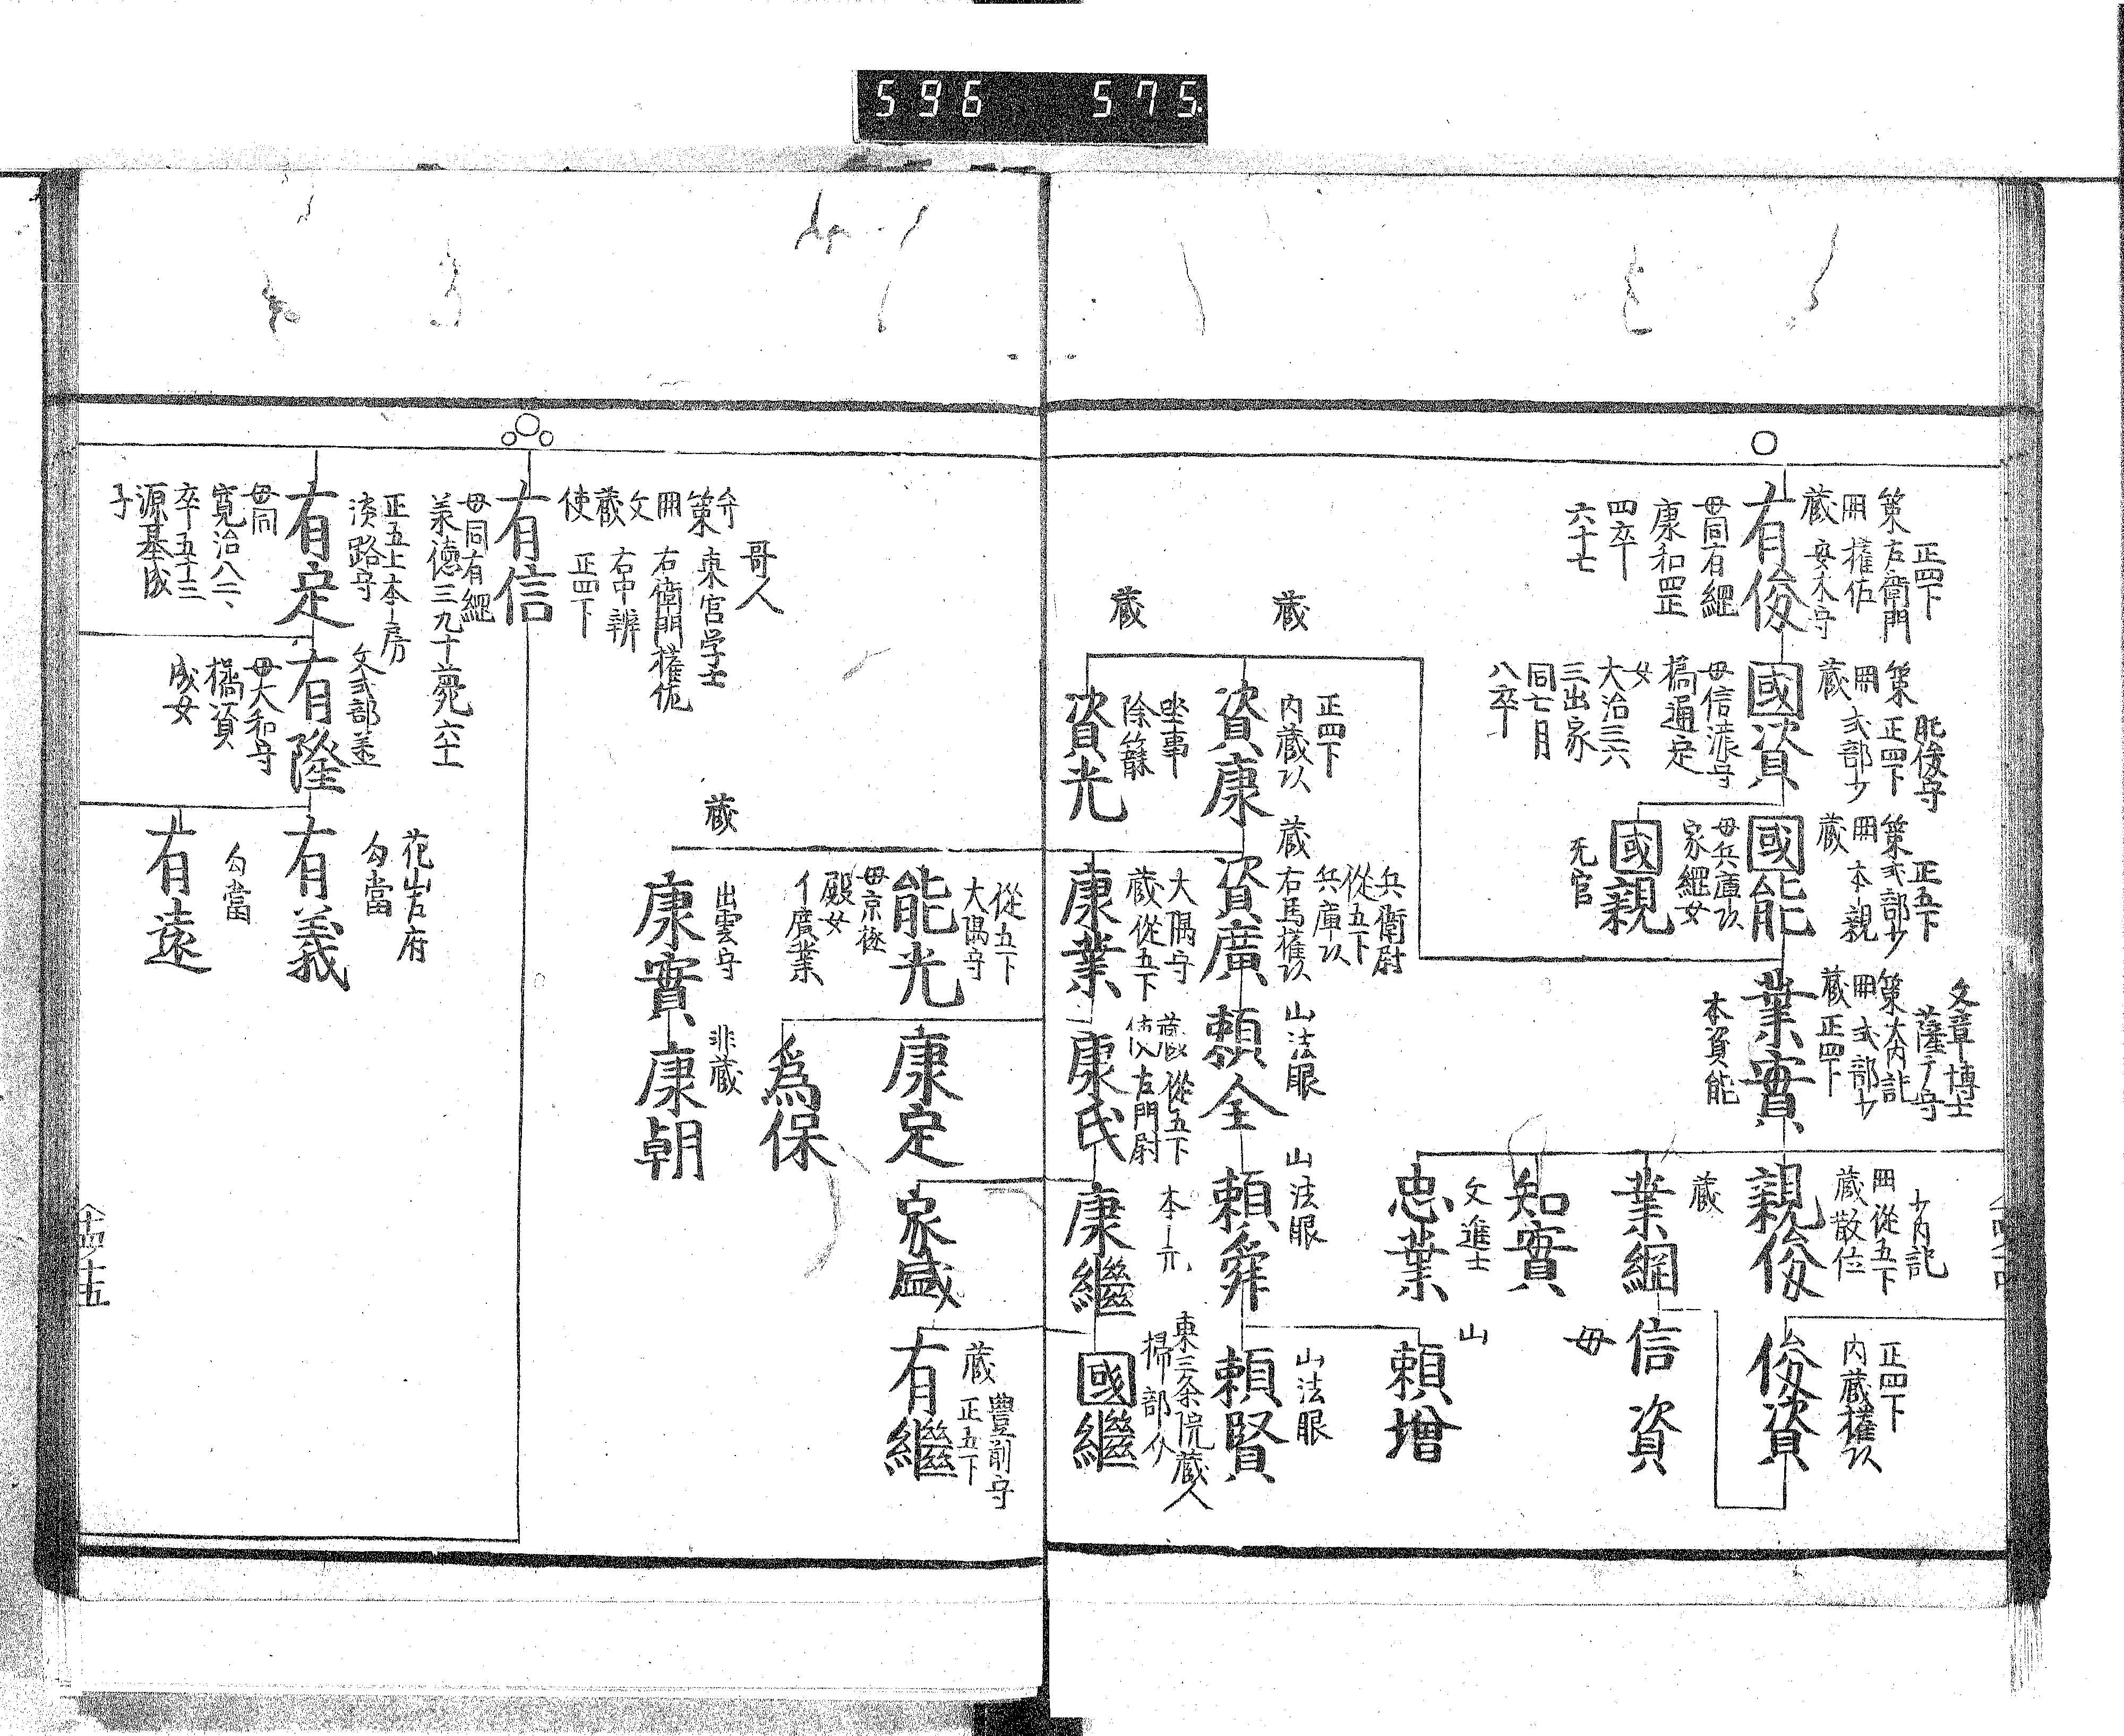 596 575
正四下
策左衛門
開権佐
蔵安木守
有俊
母同有綱
康和四正
四卒
六十七
肥後守
策正四下
開式部少
蔵
國資
母信濃守
橘通定
女
大治三六
三出家
同七月
八卒
正五下
策式部少
開本親
蔵
國能
母兵庫頭
家綱女
國親
无官
文章博士
薩ー守
策大内記
開式部少
蔵正四下
業實
本資能
少内記
開從五下
蔵散位
親俊
蔵
業綱
知實
文進士
忠業
正四下
内蔵権頭
俊資
信資
母
山
頼増
蔵
正四下
内蔵頭
資康
蔵
坐事
除籍
資光
兵衛尉
從五下
兵庫頭
蔵右馬権頭
資廣
山法眼
頼全
山法眼
頼舜
山法眼
頼賢
大隅守
蔵從五下
康業
蔵從五下
使左門尉
康氏
本ー元
康繼
東三条院蔵人
掃部介
國繼
從五下
大隅守
能光
母京極
殿女
イ廣業
康定
為保
家盛
豊前守
蔵正五下
有繼
蔵
出雲守
康實
非蔵
康朝
哥人
弁
策東宮学士
開右衛門権佐
文右中辨
蔵正四下
使
有信
母同有綱
承徳三九十薨六十
正五上本ー房
淡路守
有定
母同
寛治八二、
卒五十三
源基成
子
文式部丞
有隆
母大和守
橘資
成女
花山右府
勾當
有義
勾當
有遠
十五